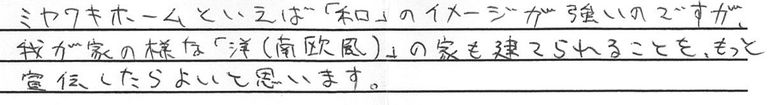 ミヤワキホームといえば「和」のイメージが強いのですが、
我が家の様な「洋(南欧風)」の家も建てられることを、もっと
宣伝したらよいと思います。